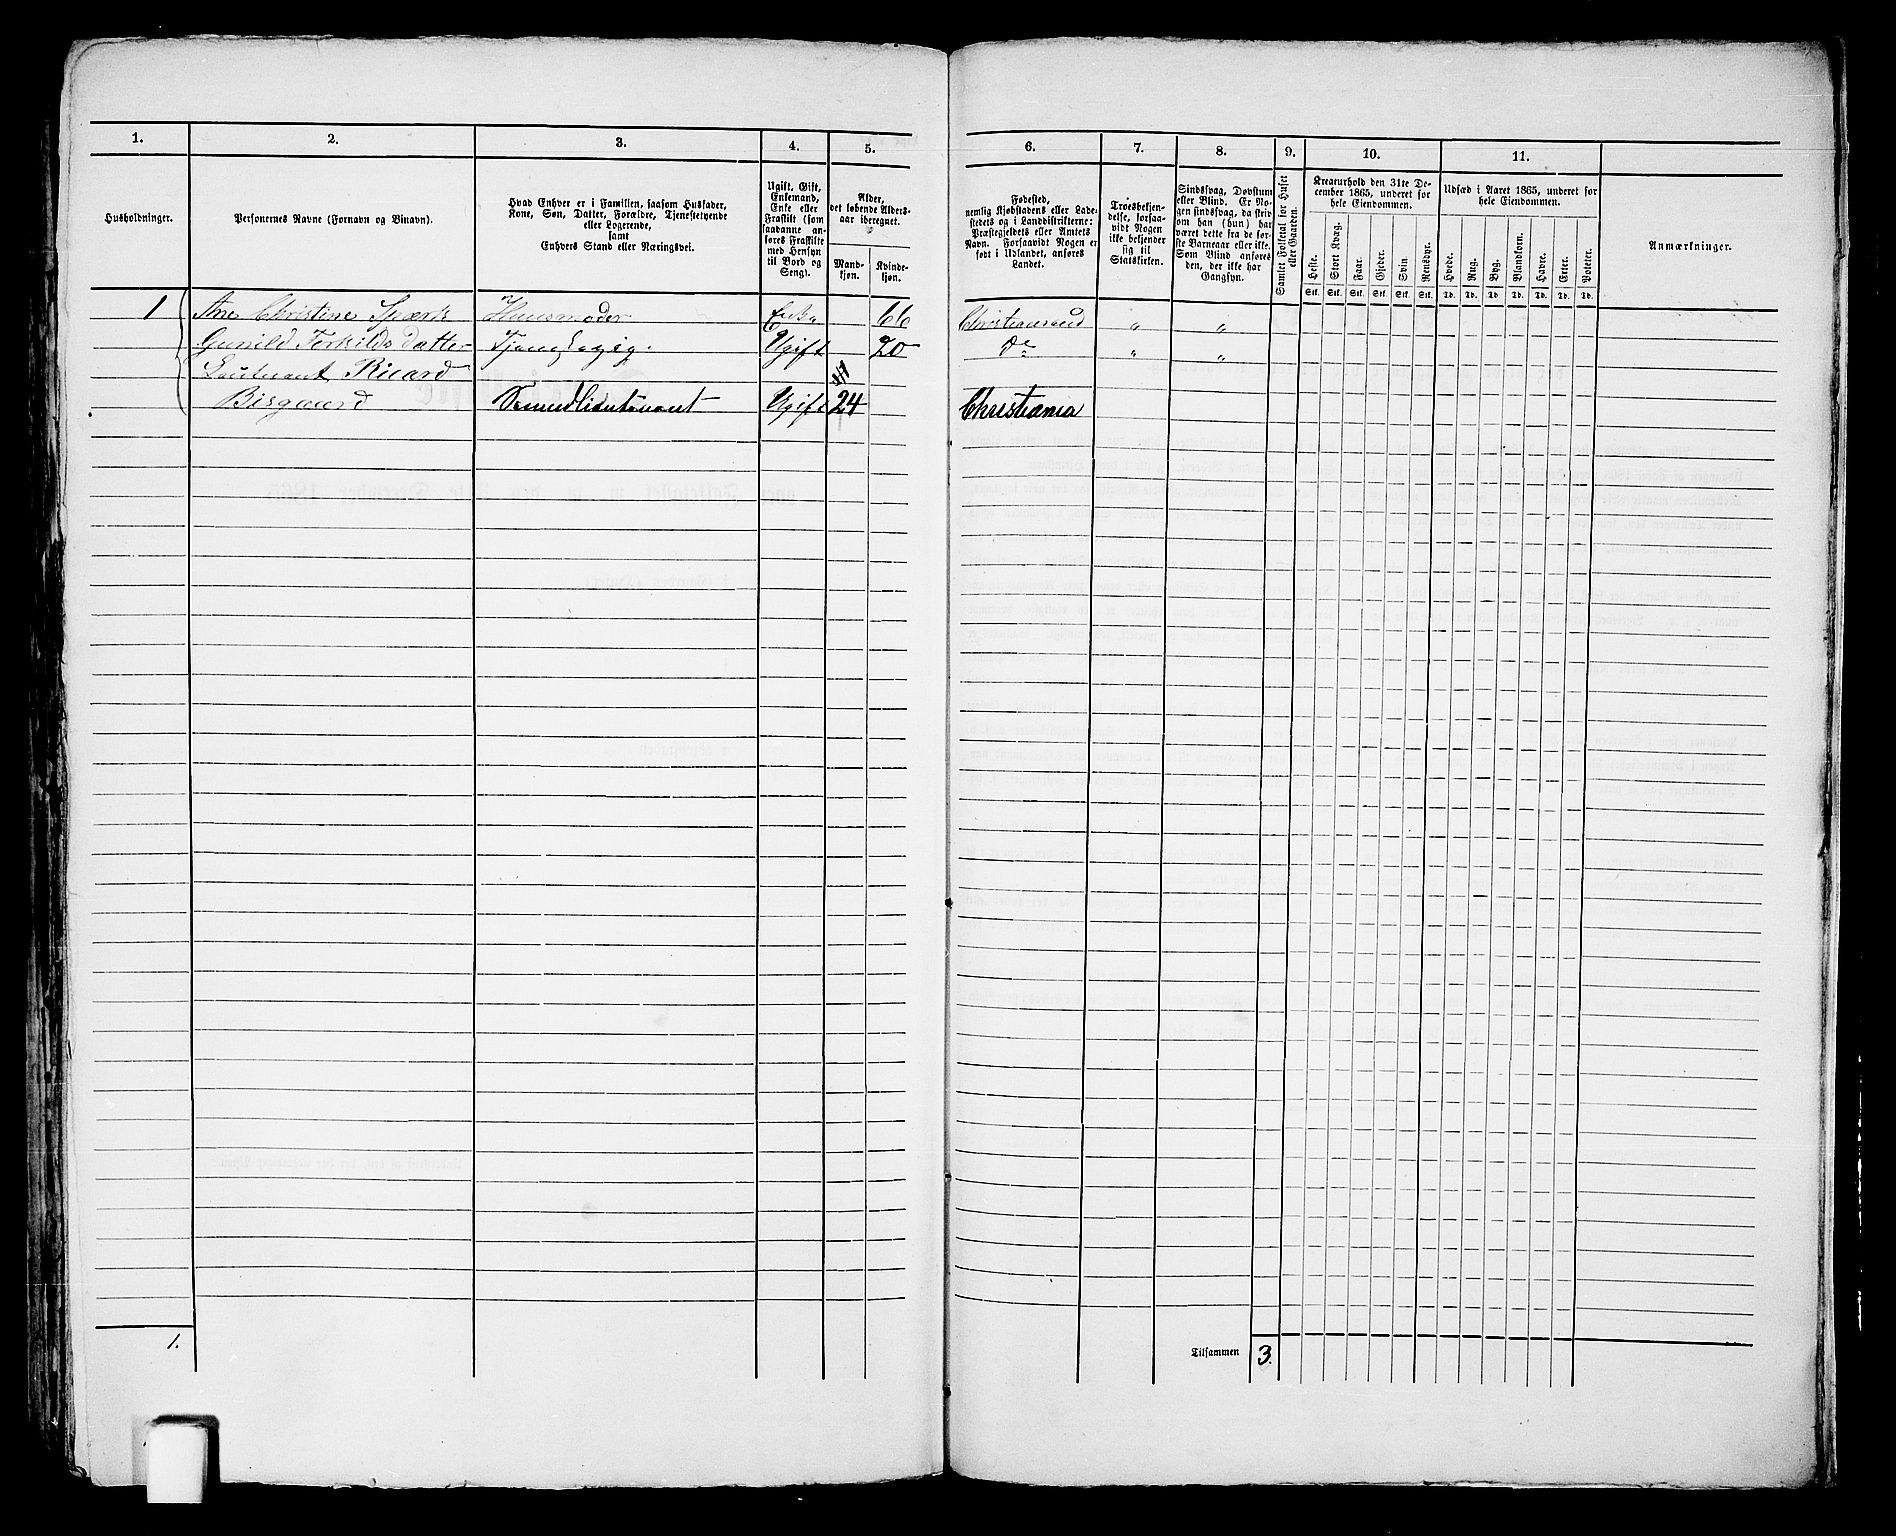 1. 2. 3. 4. 5. 6. 7. 8. 9. 10. 11.
Husholdninger.
Personernes Navne (Fornavn og Vinavn).
Hvad Enhver er i Familien, saasom Husfader,
Kone, Søn, Datter, Forældre, Tjenestetyende
eller Logerende,
samt
Enhvers Stand eller Næringsvei.
Ugift, Gift,
Enkemand,
Enke eller
Fraskilt (som
saadanne an-
føres Fraskilte
med Hensyn
til Bord og
Seng).
Alder,
det løbende Alders-
aar iberegnet.
Mand-
kjøn.
Kvinde-
kjøn.
Fødested,
nemlig Kjøbstadens eller Lade-
stedets og i Landdistrikterne:
Præstegjeldets eller Amtets
Navn. Forsaavidt Nogen er
født i Udlandet, anføres
Landet.
Troesbekjen-
delse, forsaa-
vidt Nogen
ikke bekjender
sig til
Statskirken.
Sindssvag, Døvstum
eller Blind. Er No-
gen sindssvag, da skriv
om han (hun) har
været dette fra de før-
ste Barneaar eller ikke.
Som Blind anføres
den, der ikke har
Gangsyn.
Samlet Folketal for Huset
eller Gaarden.
Kreaturhold den 31te De-
cember 1865, underet for
hele Eiendommen.
Heste. Stort Kvæg. Faar. Gjeder. Svin. Rensdyr.
Stk. Stk. Stk. Stk. Stk. Stk.
Udsæd i Aaret 1865, underet for
hele Eiendommen.
Hvede. Rug. Byg. Blandkorn. Havre. Erter. Poteter.
Td. Td. Td. Td. Td. Td. Td.
Anmærkninger.
1 Ane Christine Huusmoder Enke 66 Christiansand „ „
Gunild Terkildsdatter Ugift 20 do „ „
Lautnant Ricard
Bisgaard Secundlieutenant Ugift 24 Christiania
1.
Tilsammen 3.